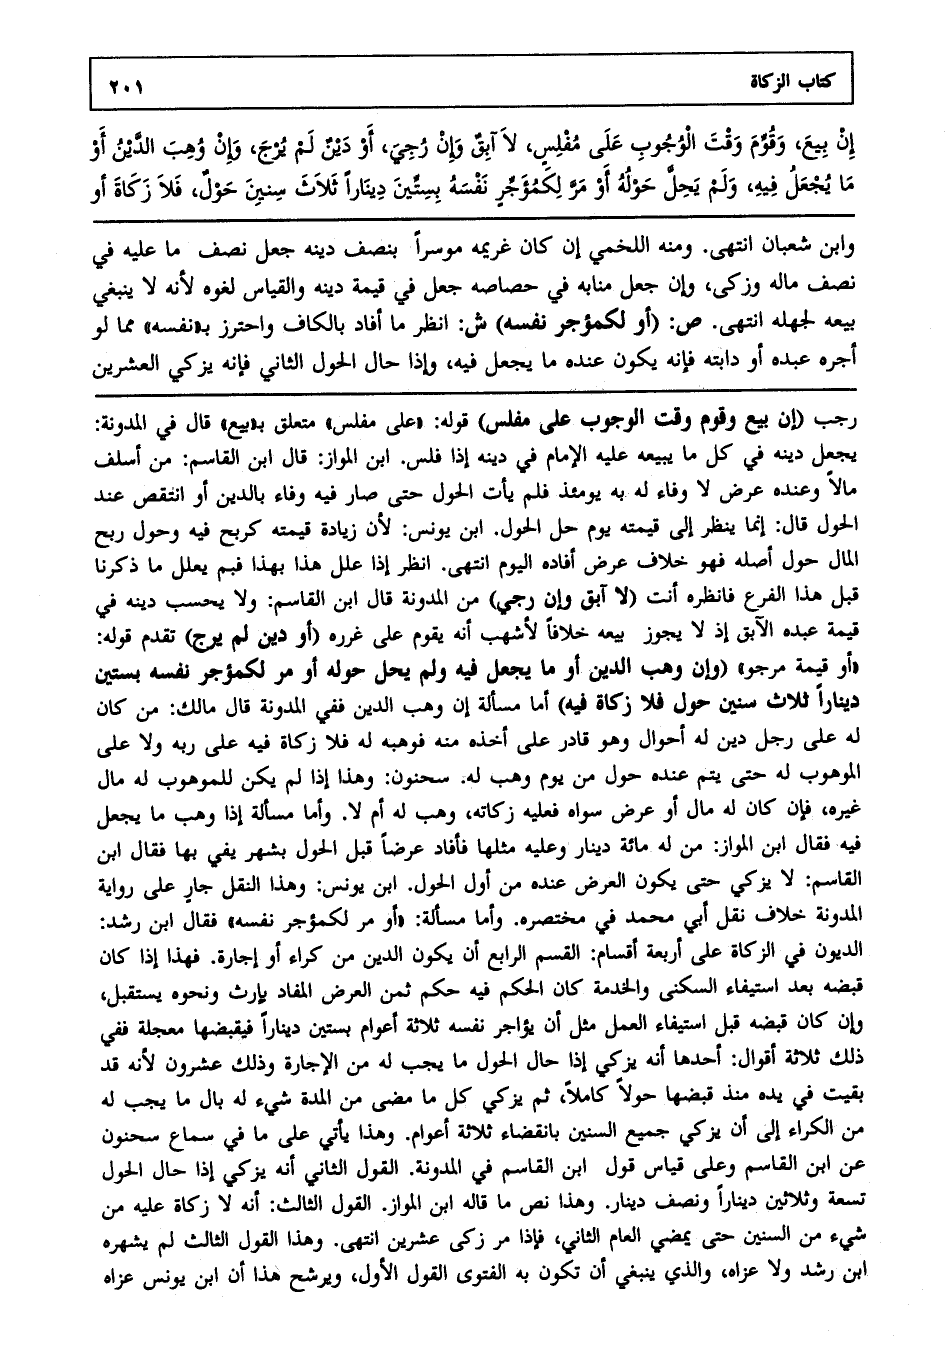 كتاب الزكاة
٢٠١
إِنْ بِيعَ، وَقُوِّمَ وَقْتَ الْوُجُوبِ عَلَى مُفْلِسٍ، لاَ آبِقٌ وَإِنْ رُجِيَ، أَوْ دَيْنٌ لَمْ يُرْجَ، وَإِنْ وُهِبَ الدَّيْنُ أَوْ
مَا يُجْعَلُ فِيهِ، وَلَمْ يَحِلَّ حَوْلُهُ أَوْ مَرَّ لِكَمُؤَجِّرٍ نَفْسَهُ بِسِتِّينَ دِينَاراً ثَلاَثَ سِنِينَ حَوْلٌ، فَلاَ زَكَاةَ أو
وابن شعبان انتهى. ومنه اللخمي إن كان غريمه موسراً بنصف دينه جعل نصف ما عليه في
نصف ماله وزكى، وإن جعل منابه في حصاصه جعل في قيمة دينه والقياس لغوه لأنه لا ينبغي
بيعه لجهله انتهى. ص: (أو لكمؤجر نفسه) ش: انظر ما أفاد بالكاف واحترز بـ«نفسه» مما لو
أجره عبده أو دابته فإنه يكون عنده ما يجعل فيه، وإذا حال الحول الثاني فإنه يزكي العشرين
رجب (إن بيع وقوم وقت الوجوب على مفلس) قوله: «على مفلس» متعلق بـ«بيع» قال في المدونة:
يجعل دينه في كل ما يبيعه عليه الإمام في دينه إذا فلس. ابن المواز: قال ابن القاسم: من أسلف
مالاً وعنده عرض لا وفاء له به يومئذ فلم يأت الحول حتى صار فيه وفاء بالدين أو انتقص عند
الحول قال: إنما ينظر إلى قيمته يوم حل الحول. ابن يونس: لأن زيادة قيمته كربح فيه وحول ربح
المال حول أصله فهو خلاف عرض أفاده اليوم انتهى. انظر إذا علل هذا بهذا فبم يعلل ما ذكرنا
قبل هذا الفرع فانظره أنت (لا آبق وإن رجي) من المدونة قال ابن القاسم: ولا يحسب دينه في
قيمة عبده الآبق إذ لا يجوز بيعه خلافاً لأشهب أنه يقوم على غرره (أو دين لم يرج) تقدم قوله:
«أو قيمة مرجو» (وإن وهب الدين أو ما يجعل فيه ولم يحل حوله أو مر لكمؤجر نفسه بستين
ديناراً ثلاث سنين حول فلا زكاة فيه) أما مسألة إن وهب الدين ففي المدونة قال مالك: من كان
له على رجل دين له أحوال وهو قادر على أخذه منه فوهبه له فلا زكاة فيه على ربه ولا على
الموهوب له حتى يتم عنده حول من يوم وهب له. سحنون: وهذا إذا لم يكن للموهوب له مال
غيره، فإن كان له مال أو عرض سواه فعليه زكاته، وهب له أم لا. وأما مسألة إذا وهب ما يجعل
فيه فقال ابن المواز: من له مائة دينار وعليه مثلها فأفاد عرضاً قبل الحول بشهر يفي بها فقال ابن
القاسم: لا يزكي حتى يكون العرض عنده من أول الحول. ابن يونس: وهذا النقل جارٍ على رواية
المدونة خلاف نقل أبي محمد في مختصره. وأما مسألة: «أو مر لكمؤجر نفسه» فقال ابن رشد:
الديون في الزكاة على أربعة أقسام: القسم الرابع أن يكون الدين من كراء أو إجارة. فهذا إذا كان
قبضه بعد استيفاء السكنى والخدمة كان الحكم فيه حكم ثمن العرض المفاد بإرث ونحوه يستقبل،
وإن كان قبضه قبل استيفاء العمل مثل أن يؤاجر نفسه ثلاثة أعوام بستين ديناراً فيقبضها معجلة ففي
ذلك ثلاثة أقوال: أحدها أنه يزكي إذا حال الحول ما يجب له من الإجارة وذلك عشرون لأنه قد
بقيت في يده منذ قبضها حولاً كاملاً، ثم يزكي كل ما مضى من المدة شيء له بال ما يجب له
من الكراء إلى أن يزكي جميع السنين بانقضاء ثلاثة أعوام. وهذا يأتي على ما في سماع سحنون
عن ابن القاسم وعلى قياس قول ابن القاسم في المدونة. القول الثاني أنه يزكي إذا حال الحول
تسعة وثلاثين ديناراً ونصف دينار. وهذا نص ما قاله ابن المواز. القول الثالث: أنه لا زكاة عليه من
شيء من السنين حتى يمضي العام الثاني، فإذا مر زكى عشرين انتهى. وهذا القول الثالث لم يشهره
ابن رشد ولا عزاه، والذي ينبغي أن تكون به الفتوى القول الأول، ويرشح هذا أن ابن يونس عزاه